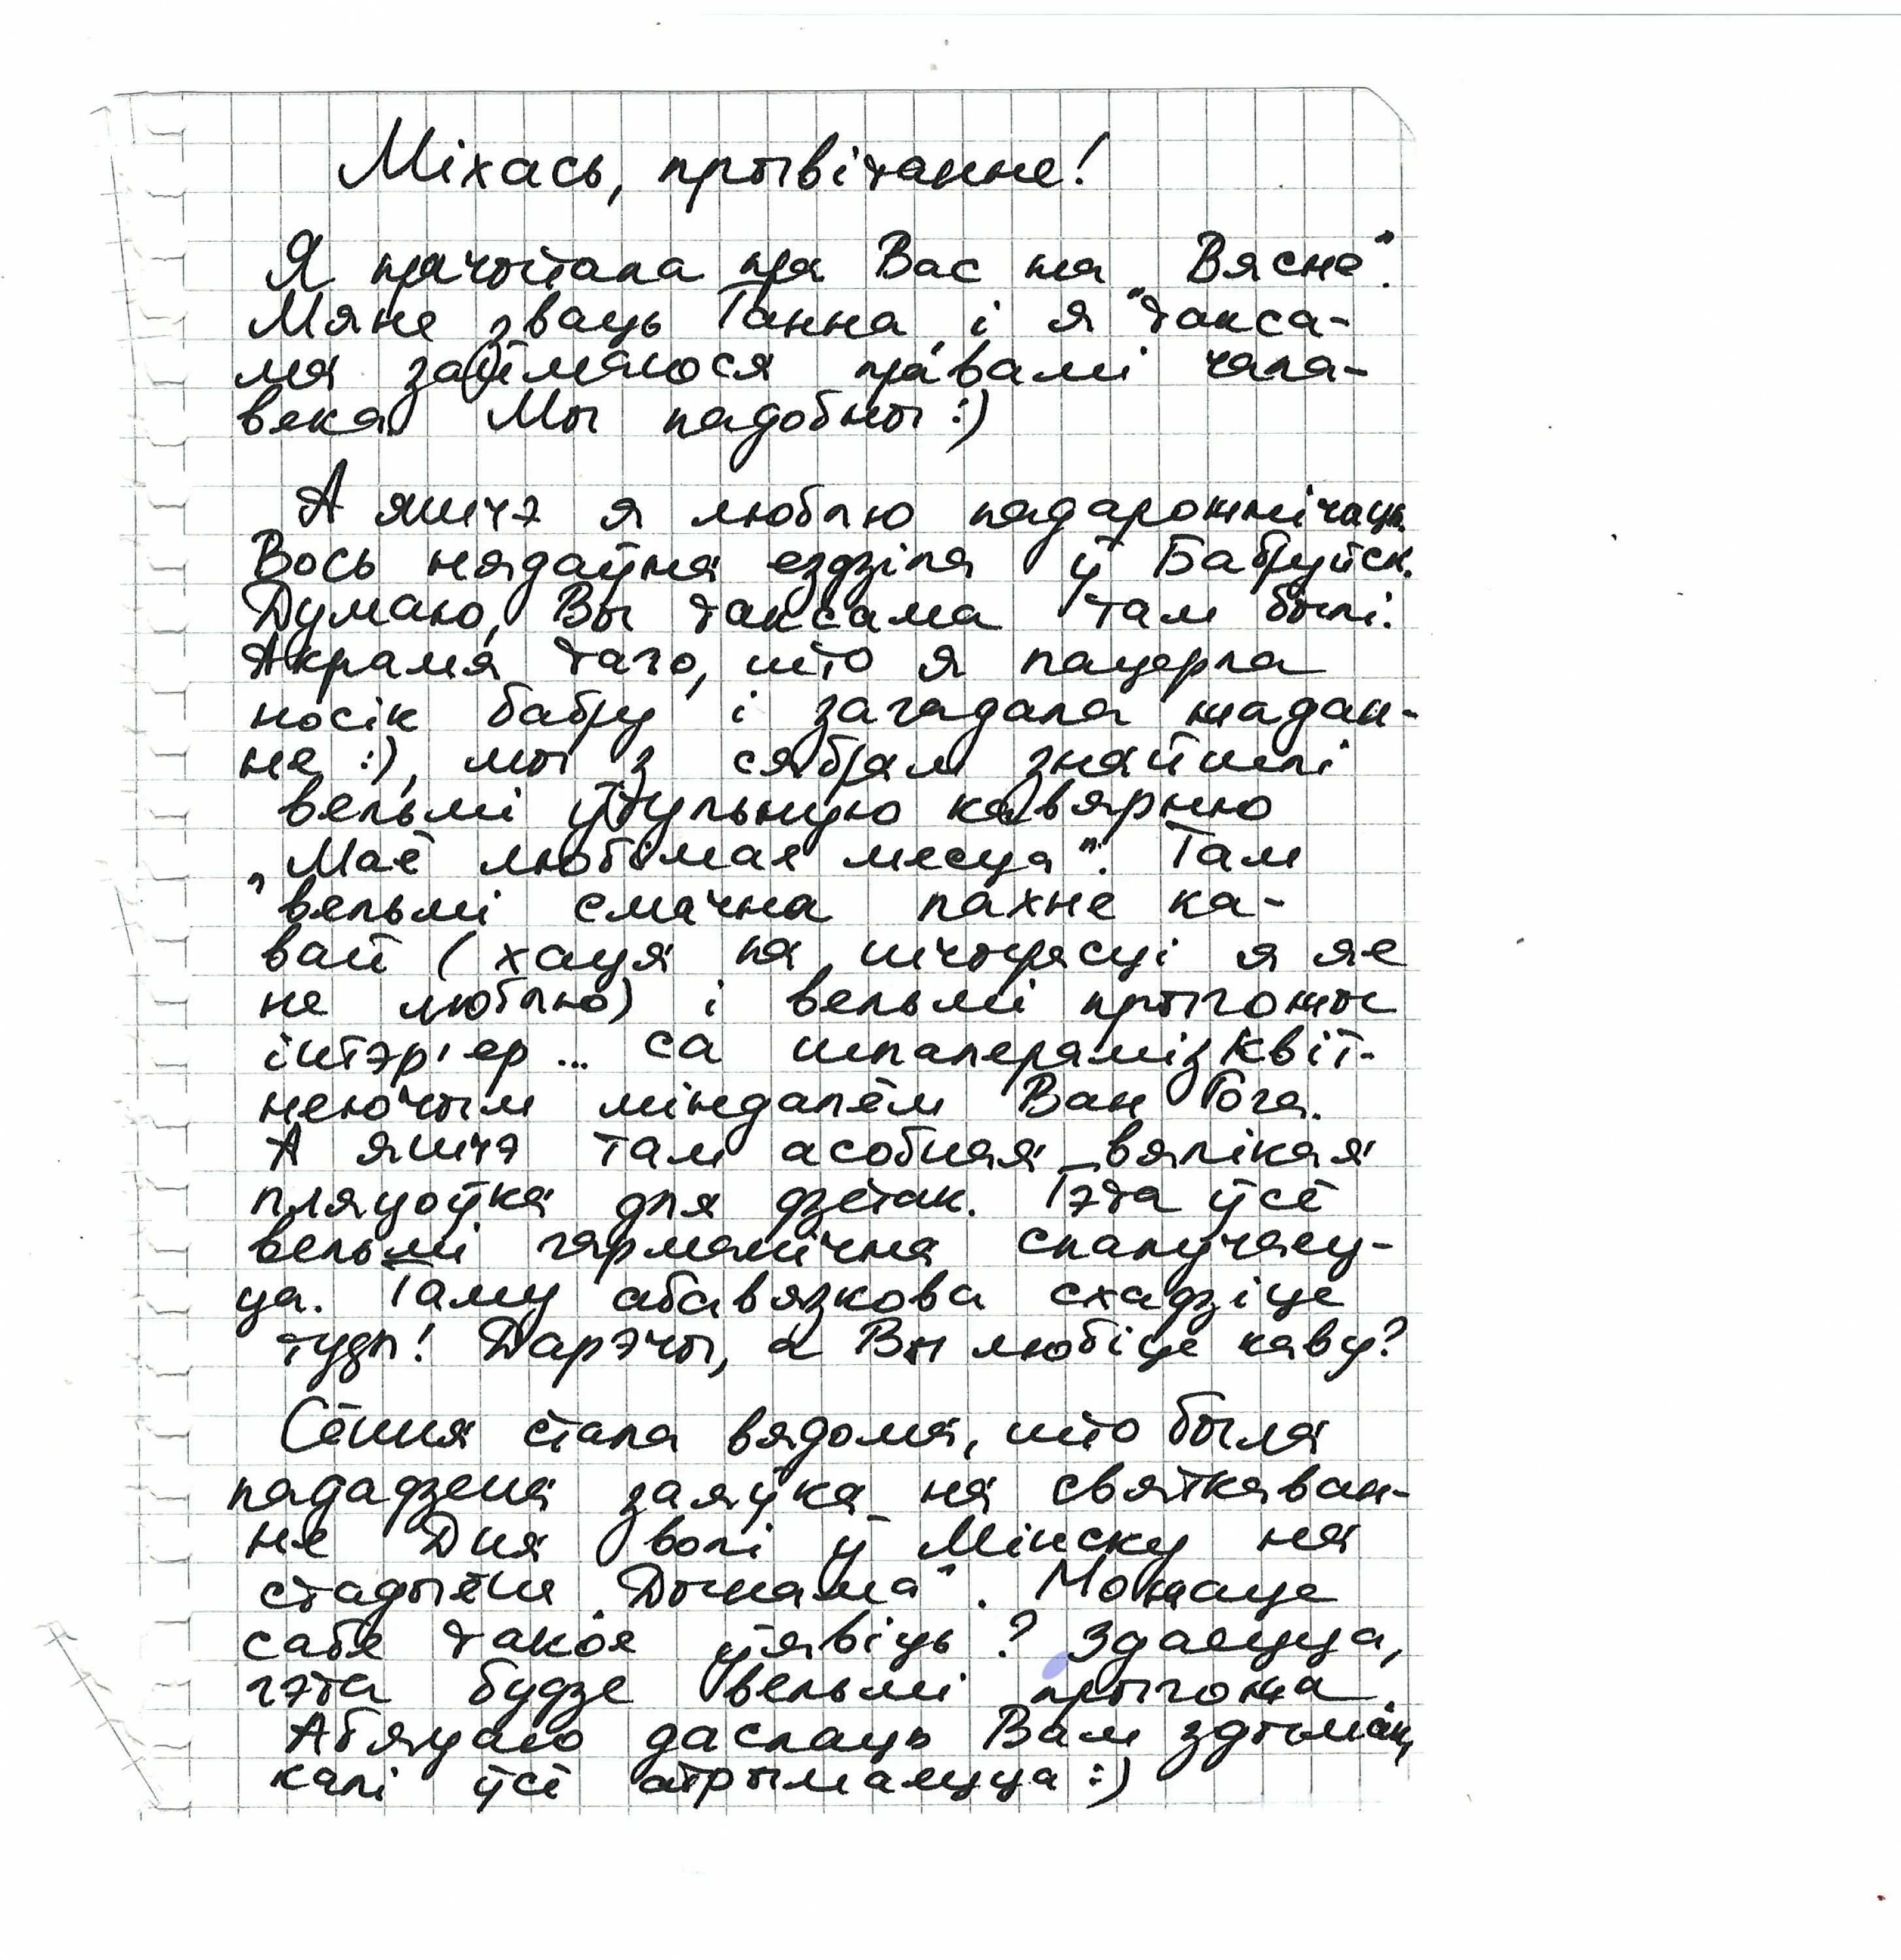 Міхась, прывітанне!
Я прачытала пра Вас на „Вясне“.
Мяне зваць Ганна, і я такса-
ма займаюся правамі чала-
века. Мы падобны :)
А яшчэ я люблю падарожнічаць.
Вось нядаўна ездзіла ў Бабруйск.
Думаю, Вы таксама там былі.
Акрамя таго, што я пацерла
носік бабру і загадала жадан-
не :), мы з сябрам знайшлі
вельмі ўтульную кавярню
„Маё любімае месца“. Там
вельмі смачна пахне ка-
вай (хаця па шчырасці я яе
не люблю) і вельмі прыгожы
інтэр'ер... са шпалерамі з квіт-
неючым міндалём Ван Гога.
А яшчэ там асобная вялікая
пляцоўка для дзетак. Гэта ўсё
вельмі гарманічна спалучаец-
ца. Таму абавязкова схадзіце
туды! Дарэчы, а Вы любіце каву?
Сёння стала вядома, што была
пададзена заяўка на святкаван-
не Дня волі ў Мінску на
стадыёне „Дынама“. Можаце
сабе такое ўявіць? Здаецца,
гэта будзе вельмі прыгожа.
Абяцаю даслаць Вам здымак,
калі ўсё атрымаецца :)